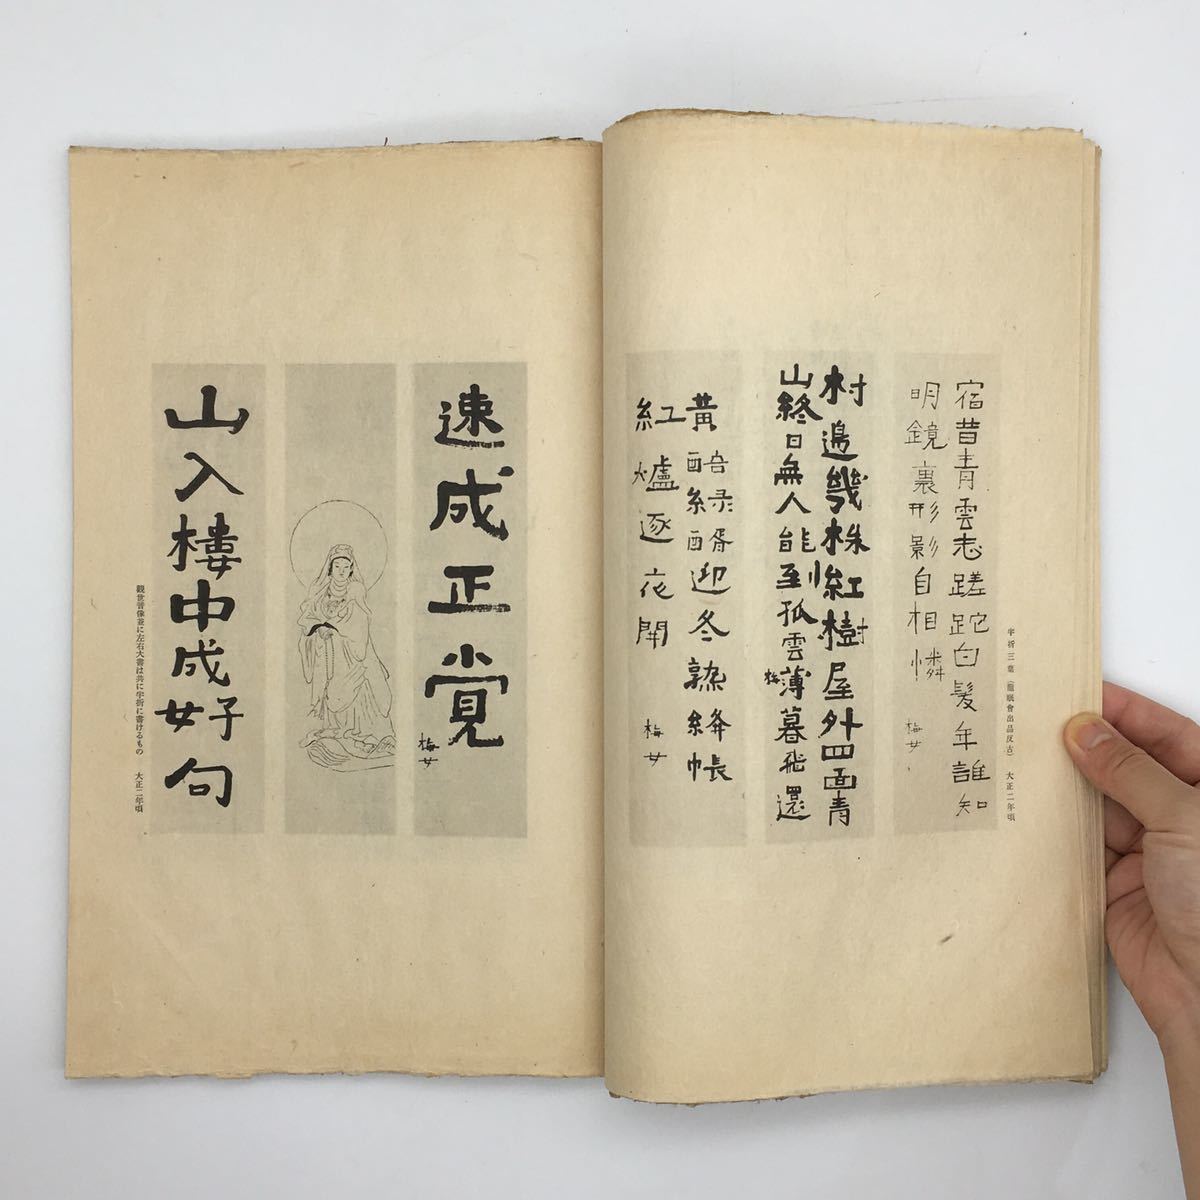 半折三葉（龍眠會出品反古）　大正二年頃
宿昔青雲志蹉跎白髮年誰知
明鏡裏形影自相憐
梅女
村邊幾株紅樹屋外四面青
山終日無人能到孤雲薄暮飛還
梅
黃醅綠醑迎冬熟絳帳
紅爐逐夜開
梅女
速成正覚
梅女
山入樓中成好句
觀世音像並に左右大書は共に半折に書けるもの　大正二年頃